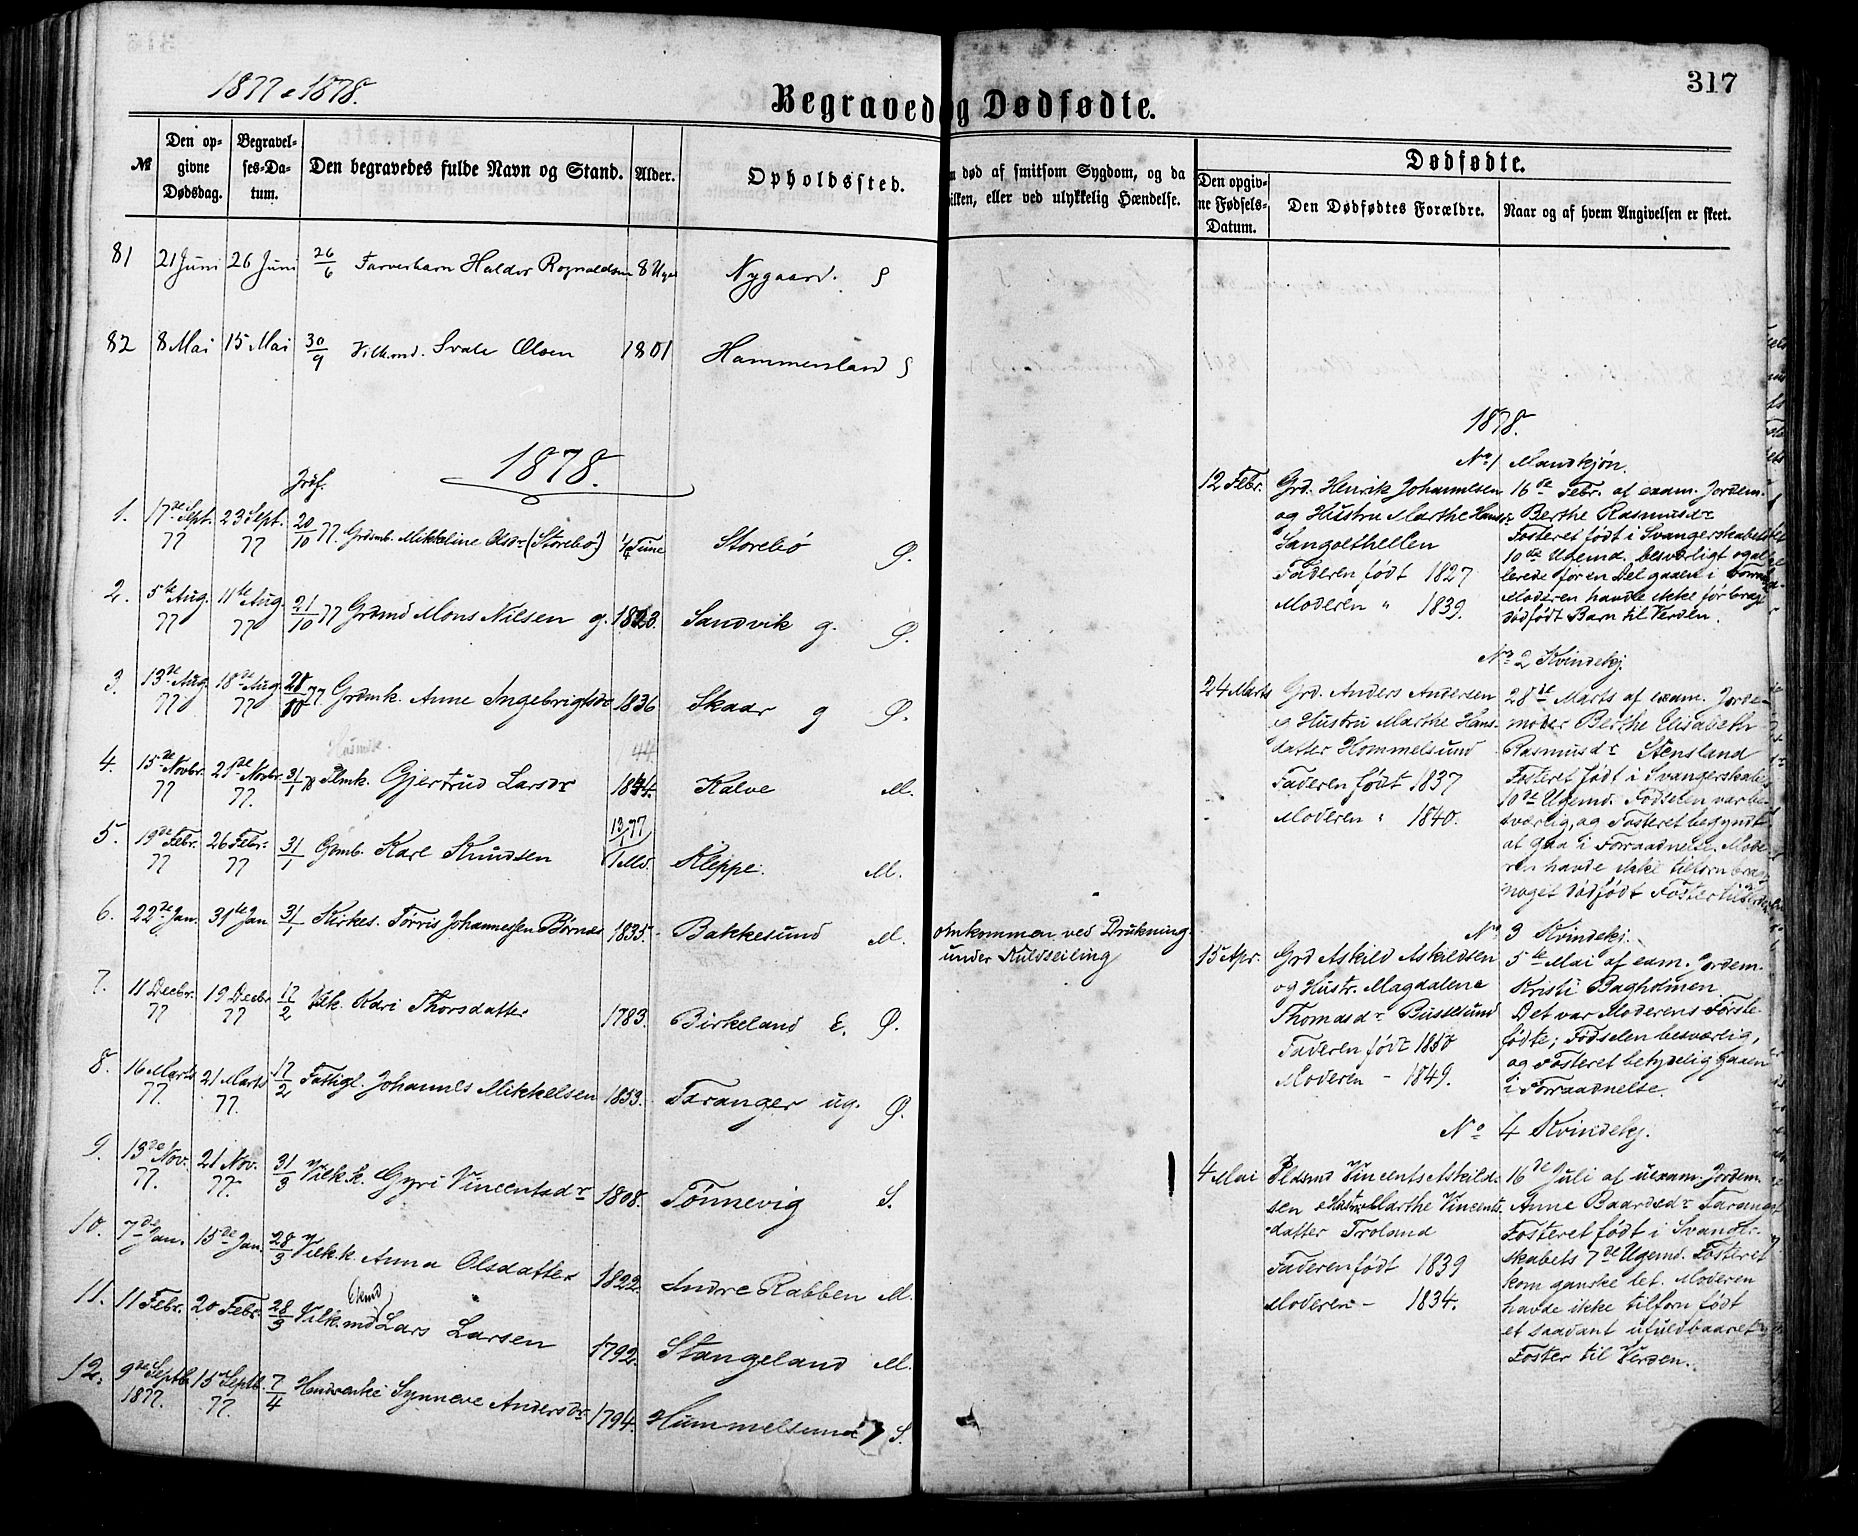 317
1877 & 1878.
Begravede og Dødfødte.
№
Den opgivne Dødsdag.
Begravelses-Datum.
Den begravedes fulde Navn og Stand.
Alder.
Opholdssted.
død af smitsom Sygdom, og da
hvilken, eller ved ulykkelig Hændelse.
Dødfødte.
Den opgivne Fødsels-Datum.
Den Dødfødtes Forældre.
Naar og af hvem Angivelsen er skeet.
81 21 Juni 26 Juni 26/6 Haldor Rognaldsen 8 Uger Nygaard. S
82 8 Mai 15 Mai 30/9 Olsen 1801 Hammersland S
1878.
Jrdf.
1. 17de Sept. 77 23 Sept. 77 20/10 77 Grdmb. Mikkeline Olsdr (Storebø) 1/4 Time Storebø Ø.
2. 5te Aug. 77 11te Aug. 77 21/10 77 Grdmd Mons Nilsen g. Sandvik g. Ø.
3. 13de Aug. 77 18de Aug. 77 77 Grdmk. Anne Ingebrigtsdr 1836 Skaar g Ø.
4. 15de Novbr. 77 21de Novbr. 77. 31/1 78 Gjertrud Larsdr 1844. Kalve M.
5. 19de Febr. 77 26 Febr. 77 31/1 Karl Knudsen 13/1 77 Kleppe. M.
6. 22de Jan. 31te Jan 31/1 Kirkes. Tørris Johannessen Børnes 1835 Bakkesund M. Omkommen ved Drukning
under Kuldseiling
7. 11 Decbr. 77 19 Decbr 77 17/2 Kari Thorsdatter 1783. Birkeland E. Ø.
8. 16 Marts 77. 21 Marts 77. 17/2 Fattigl. Johannes Mikkelsen 1853. Taranger ug. Ø.
9. 13de Nov. 77. 21 Nov. 77. 31/3 Vilk.k. Gyri Vincentsdr 1808. Tønnevig S.
10. 7de Jan. 15de Jan. 28/3 Vilk.k. Anna Olsdatter 1822. Indre Rabben M.
11. 11 Febr. 20 Febr. 28/3 Vilk.md Lars Larsen 1792. Stangeland M.
12. 9de Septb. 1877. 15 Septb. 77. 7/4 Synneve Andersdr 1794. Hummelsund S.
1878.
No. 1 Mandkjøn.
12 Febr. Grd. Henrik Johannesen
og Hustru Marthe Hansdr
Faderen født 1827
Moderen " 1839.
16de Febr. af exam. Jordem.
Berthe Rasmusdr
Fosteret født i Svangerskabets
10de Ugemd. besværligt og al-
lerede for en Del gaaen i
Moderen havde ikke før bragt
dødfødt Barn til Verden.
No. 2 Kvindekj.
24 Marts Grd. Anders Andersen
& Hustru Marthe Hans-
datter Hommelsund
Faderen født 1837
Moderen " 1840.
28de Marts af exam. Jorde-
moder Berthe Elisabeth
Rasmusdr Stensland
Fosteret født i Svangerskabets
10de Ugemd. Fødselen var be-
sværlig, og Fosteret begyndt
at gaa i Forraadnelse. Mode-
ren havde ikke tilforn bragt
noget dødfødt Foster til Verden
No. 3 Kvindekj.
15 Apr. Grd Askild Askildsen
og Hustr. Magdalene
Thomasdr Bustesund
Faderen født 1850
Moderen - 1849.
5te Mai af exam. Jordem.
Kristi Bagholmen
Det var Moderens Første-
fødte; Fødselen besværlig,
og Fosteret betydelig gaaen
i Forraadnelse.
No. 4 Kvindekj.
4 Mai Vincents Askild-
sen & Hustr. Marthe Vincents-
datter Troland
Faderen født 1839
Moderen - 1834.
16de Juli af uexam. Jordem.
Anne Baardsdr Taranger
Fosteret født i Svanger-
skabets 7de Ugemd. Fosteret
kom ganske let. Moderen
havde ikke tilforn født
et saadant ufuldbaaret
Foster til Verden.